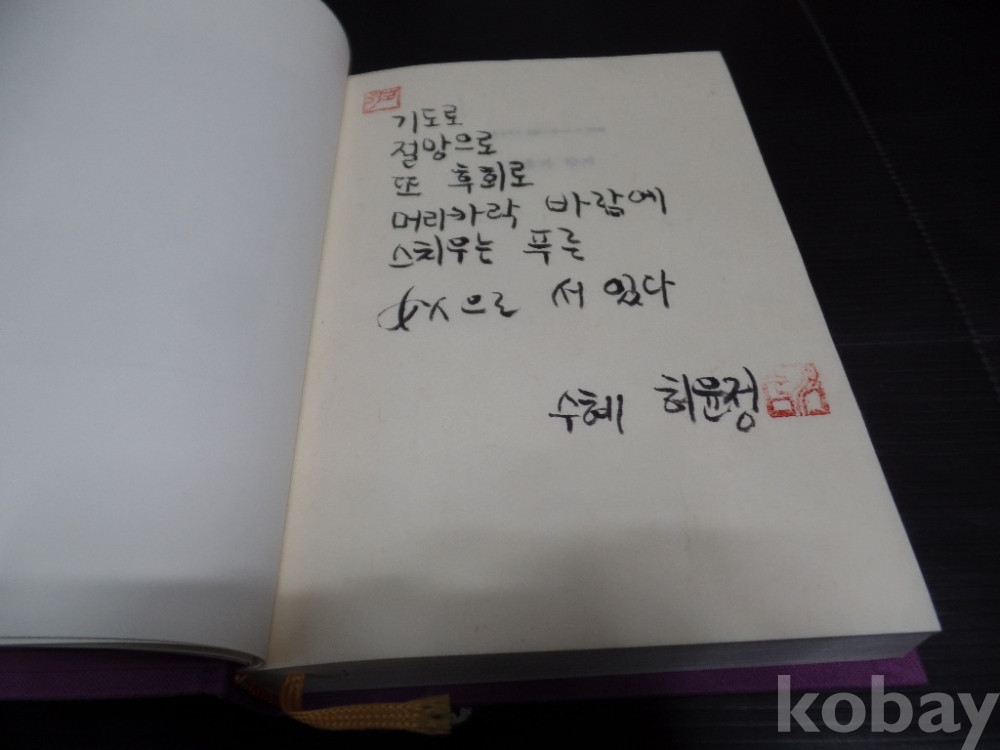 기도로
절망으로
또 후회로
머리카락 바람에
스치우는 푸른
女人으로 서 있다
수혜 허윤정
kobay